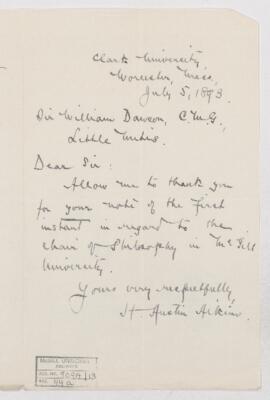 Clark University,
Worcester, Mass,
July 5, 1893.
Sir William Dawson, C.M.G.,
Little Metis.
Dear Sir:
Allow me to thank you
for your note of the first
instant in regard to the
chair of Philosophy in McGill
University.
Yours very respectfully,
H. Austin Aikins.
McGILL UNIVERSITY
ARCHIVES
ACC. NO. 909A/13
REF. 44a